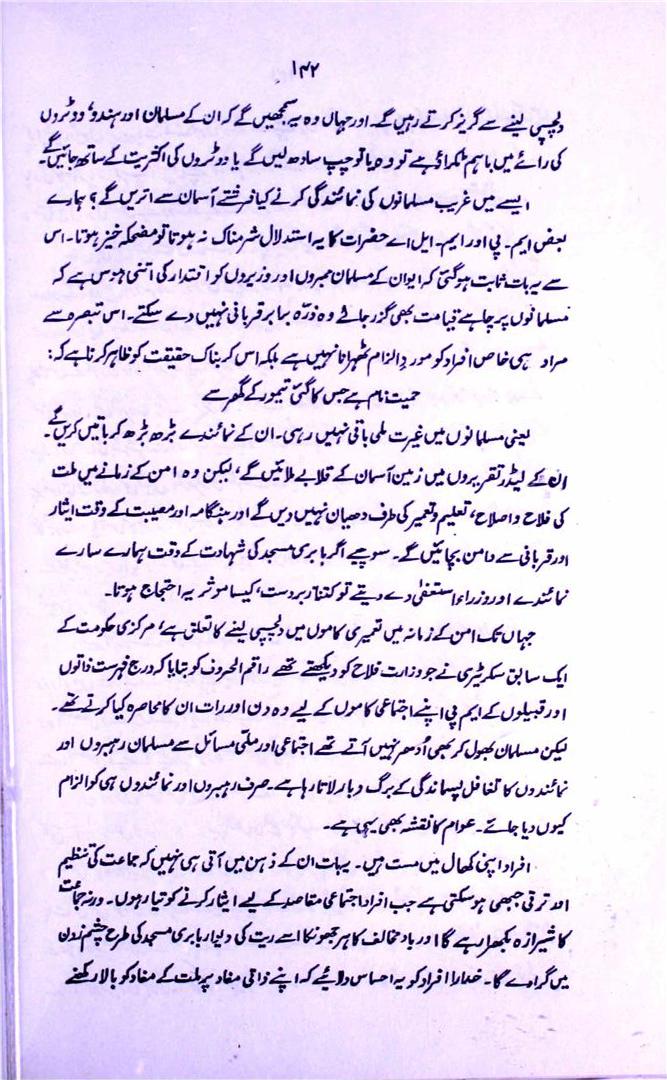 ۱۴۲
دلچسپی لینے سے گریز کرتے رہیں گے۔ اور جہاں وہ یہ سمجھیں گے کہ ان کے مسلمان اور ہندو ووٹروں
کی رائے میں باہم ٹکراؤ ہے تو وہ یا تو چپ سادھ لیں گے یا ووٹروں کی اکثریت کے ساتھ جائیں گے۔
ایسے میں غریب مسلمانوں کی نمائندگی کرنے کیا فرشتے آسمان سے اتریں گے؟ ہمارے
بعض ایم۔ پی اور ایم۔ ایل اے حضرات کا یہ استدلال شرمناک نہ ہوتا تو مضحکہ خیز ہوتا۔ اس
سے یہ بات ثابت ہو گئی کہ ایوان کے مسلمان ممبروں اور وزیروں کو اقتدار کی اتنی ہوس ہے کہ
مسلمانوں پر چاہے قیامت بھی گزر جائے وہ ذرّہ برابر قربانی نہیں دے سکتے۔ اس تبصرہ سے
مراد ہی خاص افراد کو موردِ الزام ٹھہرانا نہیں ہے بلکہ اس کربناک حقیقت کو ظاہر کرنا ہے کہ:
حمیت نام ہے جس کا گئی تیمور کے گھر سے
یعنی مسلمانوں میں غیرت ملی باقی نہیں رہی۔ ان کے نمائندے بڑھ بڑھ کر باتیں کریں گے۔
ان کے لیڈر تقریروں میں زمین آسمان کے قلابے ملائیں گے، لیکن وہ امن کے زمانے میں ملت
کی فلاح و اصلاح، تعلیم و تعمیر کی طرف دھیان نہیں دیں گے اور ہنگامہ اور مصیبت کے وقت ایثار
اور قربانی سے دامن بچائیں گے۔ سوچیے اگر بابری مسجد کی شہادت کے وقت ہمارے سارے
نمائندے اور وزراء استعفیٰ دے دیتے تو کتنا زبردست، کیسا موثر یہ احتجاج ہوتا۔
جہاں تک امن کے زمانہ میں تعمیری کاموں میں دلچسپی لینے کا تعلق ہے، مرکزی حکومت کے
ایک سابق سکریٹری نے جو وزارت فلاح کو دیکھتے تھے راقم الحروف کو بتایا کہ درج فہرست ذاتوں
اور قبیلوں کے ایم پی اپنے اجتماعی کاموں کے لیے وہ دن اور رات ان کا محاصرہ کیا کرتے تھے۔
لیکن مسلمان بھول کر بھی اُدھر نہیں آتے تھے اجتماعی اور ملّی مسائل سے مسلمان رہبروں اور
نمائندوں کا تغافل پسماندگی کے برگ و بار لاتا رہا ہے۔ صرف رہبروں اور نمائندوں ہی کو الزام
کیوں دیا جائے۔ عوام کا نقشہ بھی یہی ہے۔
افراد اپنی کھال میں مست ہیں۔ یہ بات ان کے ذہن میں آتی ہی نہیں کہ جماعت کی تنظیم
اور ترقی جبھی ہو سکتی ہے جب افراد اجتماعی مقاصد کے لیے ایثار کرنے کو تیار ہوں۔ ورنہ جماعت
کا شیرازہ بکھرا رہے گا اور باد مخالف کا ہر جھونکا اسے ریت کی دیوار بابری مسجد کی طرح چشم زدن
میں گرا دے گا۔ خدارا افراد کو یہ احساس دلائیے کہ اپنے ذاتی مفاد پر ملت کے مفاد کو بالا رکھنے